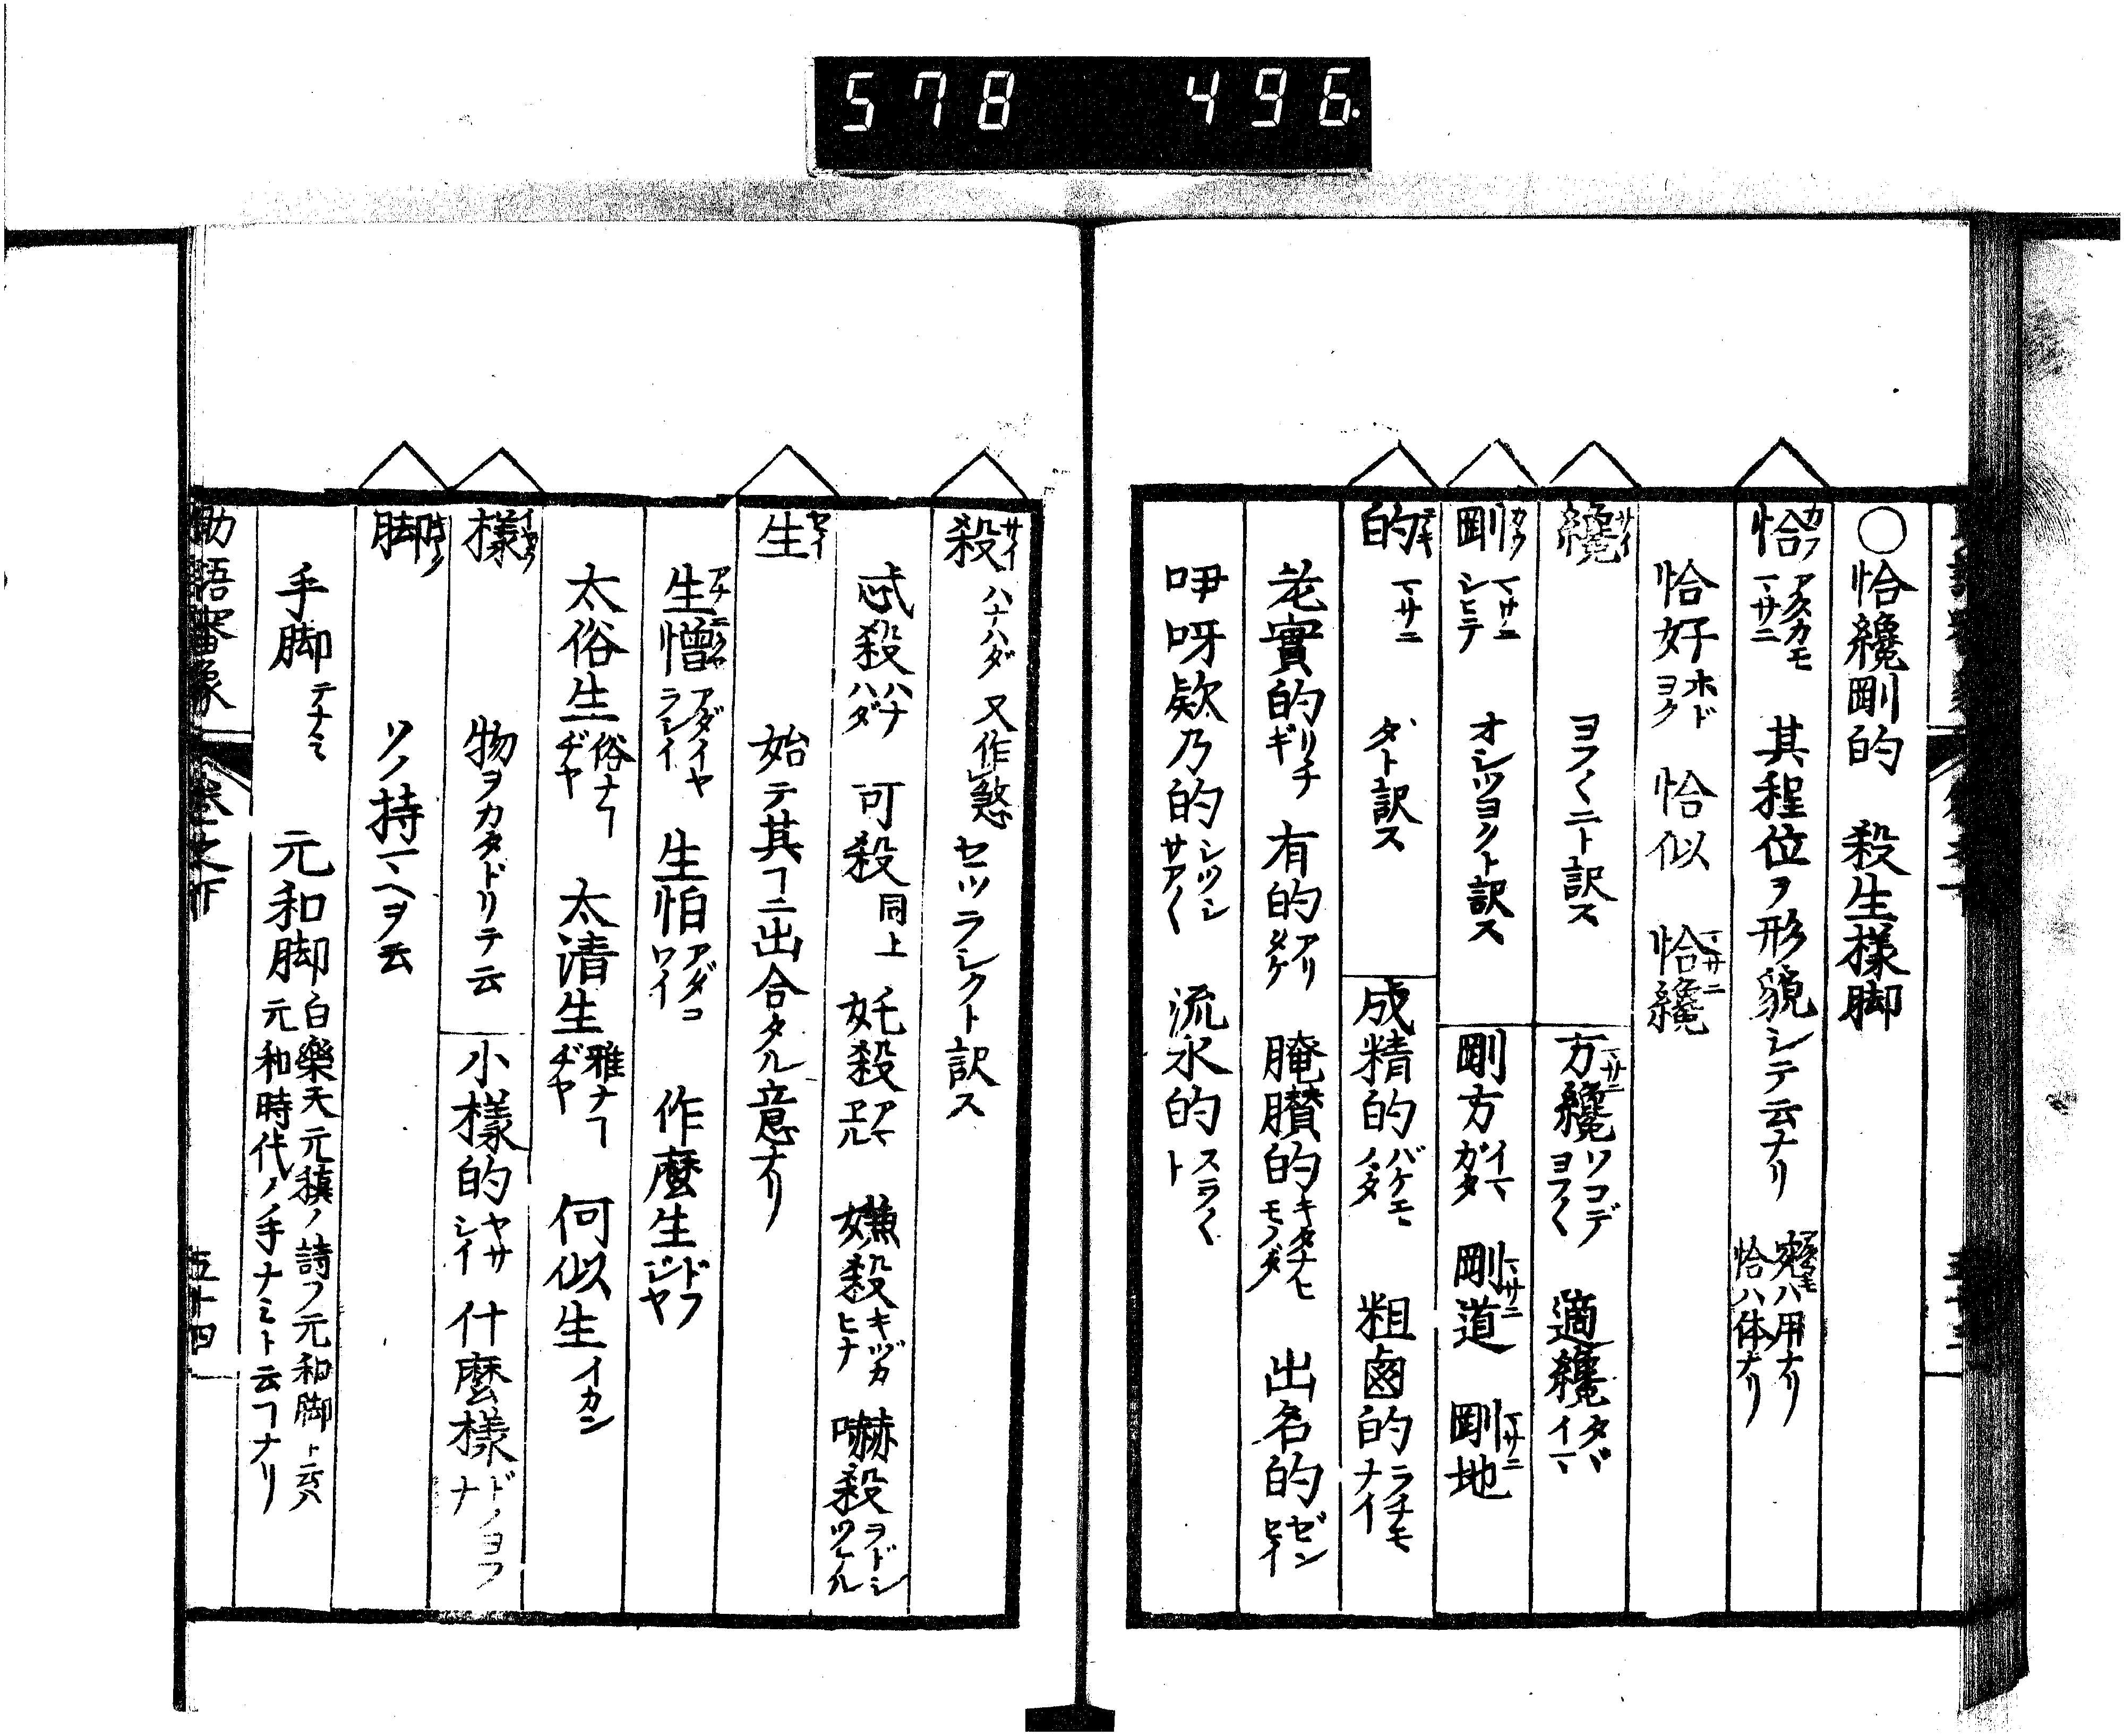 578 496
○恰纔剛的 殺生樣脚
恰 カフ アタカモ マサニ 其程位ヲ形貌シテ云ナリ 宛ハ用ナリ 恰ハ体ナリ
恰好 ホドヨク 恰似 恰纔 マサニ
纔 サイ ヨフ〱ニト訳ス 方纔 マサニ ソコデ ヨフ〱 適纔 タヾイマ
剛 カウ マサニ シヒテ オシツヨクト訳ス 剛方 イマガタ 剛道 マサニ 剛地 マサニ
的 テキ マサニ ダト訳ス 成精的 バケモノダ 粗鹵的 ラチモナイ
老實的 リチギ 有的 アリダケ 腌臢的 キタナヒモノダ 出名的
呷呀欵乃的 シツシサアく 流水的 スラ〱ト
殺 サイ ハナハダ 又作煞 セツラシクト訳ス
忒殺 ハナハダ 可殺 同上 奼殺 アマヱル 嫌殺 キヅカヒナ 嚇殺 ヲドシツケル
生 セイ 始テ其ヿニ出合タル意ナリ
生憎 アナニクヤ アダイヤラシイ 生怕 アダコワイ 作麼生 ドフジヤ
太俗生 俗ナヿヂヤ 太清生 雅ナヿヂヤ 何似生 イカン
樣 イヤウ 物ヲカタドリテ云 小樣的 ヤサシイ 什麼樣 ドノヨフナ
脚 キヤク ソノ持マヘヲ云
手脚 テナミ 元和脚 白樂天元稹ノ詩ヲ元和脚ト云ハ 元和時代ノ手ナミト云ヿナリ
助語審象 卷之下 五十四